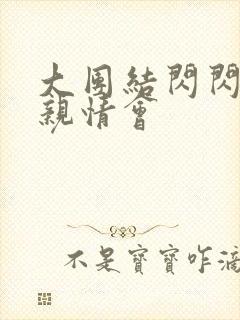 大團結閃閃
親情會
不是寶寶咋滴